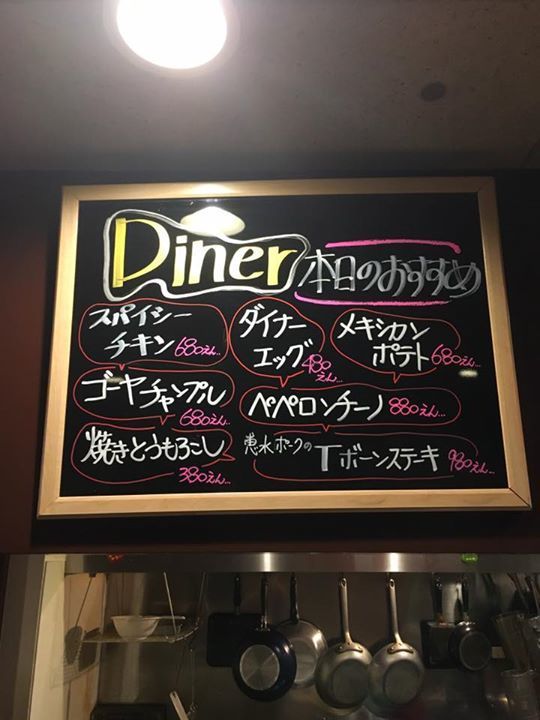 Diner 本日のおすすめ
スパイシー
チキン 680えん...
ダイナー
エッグ 480
えん...
メキシカン
ポテト 680えん...
ゴーヤチャンプル
680えん...
ペペロンチーノ 880えん...
焼きとうもろこし
380えん...
恵水ポークの
Tボーンステーキ 980えん...